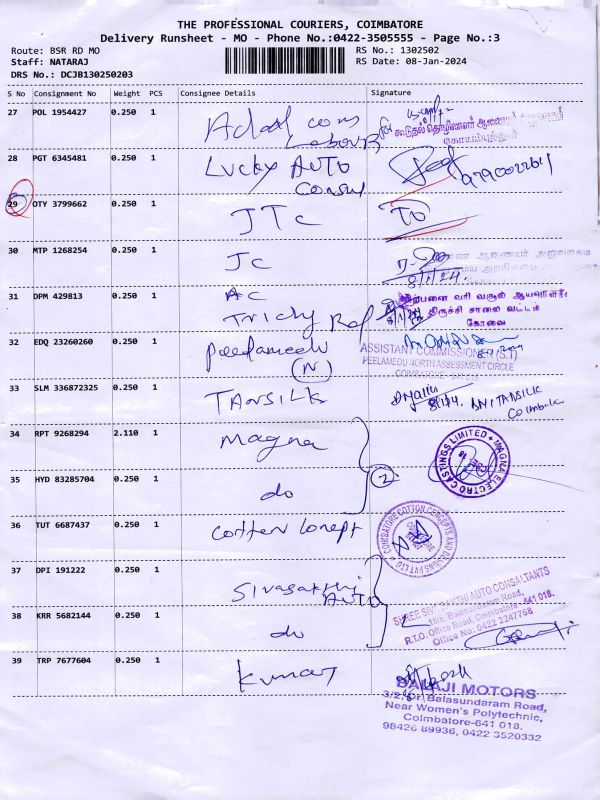 THE PROFESSIONAL COURIERS, COIMBATORE
Delivery Runsheet - MO - Phone No.:0422-3505555 - Page No.:3
Route: BSR RD MO
RS No.: 1302502
Staff: NATARAJ
RS Date: 08-Jan-2024
DRS No.: DCJB130250203
S No Consignment No Weight PCS Consignee Details Signature
27 POL 1954427 0.250 1
Labour
கூடுதல் தொழிலாளர் ஆணையர்
28 PGT 6345481 0.250 1 Lucky Auto
Consul
29 OTY 3799662 0.250 1 JTC
30 MTP 1268254 0.250 1 JC
8/1/24.
31 DPM 429813 0.250 1 AC
Trichy Rd
விற்பனை வரி வசூல் ஆய்வாளர்
திருச்சி சாலை வட்டம்
கோவை
32 EDQ 23260260 0.250 1 Peelamedu
(N)
ASSISTANT COMMISSIONER (S.T)
PEELAMEDU NORTH ASSESSMENT CIRCLE
COIMBATORE
33 SLM 336872325 0.250 1 TANSILK
8/1/24.
34 RPT 9268294 2.110 1 Magna
MAGNA ELECTRO CASTINGS LIMITED
35 HYD 83285704 0.250 1 do
2
36 TUT 6687437 0.250 1 Cotton Concept
COIMBATORE COTTON CONCEPTS AND DESIGNS PVT LTD
37 DPI 191222 0.250 1 Sivasakthi
AUTO
2
SHREE SIVASAKTHI AUTO CONSULTANTS
Balasundaram Road,
R.T.O. Office Road, Coimbatore-641 018.
Office No: 0422 2247768
38 KRR 5682144 0.250 1 do
39 TRP 7677604 0.250 1 Kumar
BALAJI MOTORS
3/2, Dr. Balasundaram Road,
Near Women's Polytechnic,
Coimbatore-641 018,
98426 89936, 0422 3520332